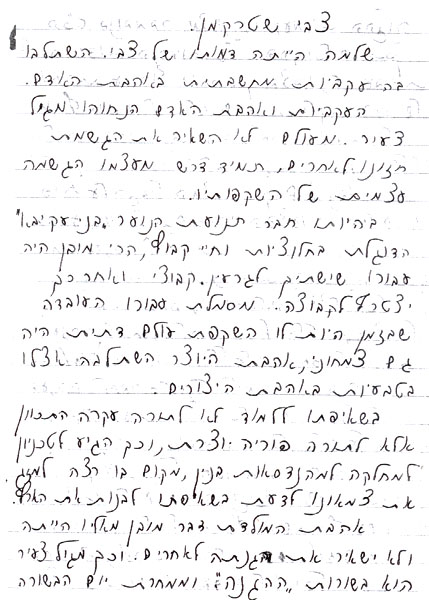 צבי שטרקמן.
שלמה הייתה דמותו של צבי. השתלבו
בה עקביות מחשבתית באהבת האדם.
העקביות ואהבת האדם הנחוהו מגיל
צעיר. מעולם לא השאיר את הגשמת
חזונו לאחרים, תמיד דרש מעצמו הגשמה
עצמית של השקפותיו.
בהיותו חבר תנועת הנוער "בני עקיבא"
הדוגלת בחלוציות וחיי קבוץ, הרי מובן היה
עבורו שישתייך לגרעין קבוצי ואחר כך
יצטרף לקבוצה. מסמלת עבורו העובדה
שבזמן היות לו השקפת עולם דתית היה
גם צמחוני, אהבת היוצר השתלבה אצלו
בטבעיות באהבת היצורים.
בשאיפתו ללמוד לא לתורה עקרה התכוון
אלא לתורה פוריה יוצרת, וכך הגיע לטכניון
למחלקה להנדסאות בנין, מקום בו רצה
את צמאונו לדעת בשאיפתו לבנות את הארץ.
אהבת המולדת דבר מובן מאליו הייתה
ולא ישאיר את הגנתה לאחרים. וכך מגיל צעיר
הוא בשורות "ההגנה" וממחרת יום הבשורה